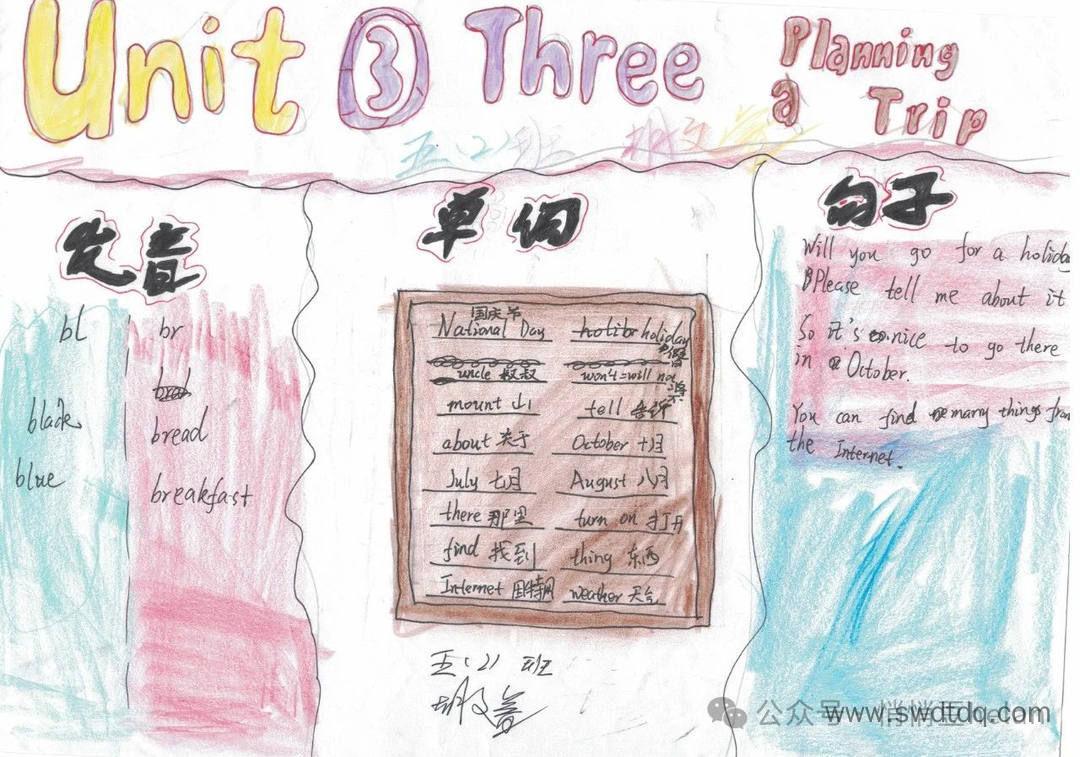 Unit ③ Three Planning
a Trip
五(2)班
发音
bl br
black bread
blue breakfast
单词
国庆节
National Day holiday
uncle 叔叔 won't=will not
mount 山 tell 告诉
about 关于 October 十月
July 七月 August 八月
there 那里 turn on 打开
find 找到 thing 东西
Internet 因特网 weather 天气
五(2) 班
句子
Will you go for a holiday
Please tell me about it
So it's nice to go there
in October.
You can find many things from
the Internet.
公众号
www.swdtdq.com